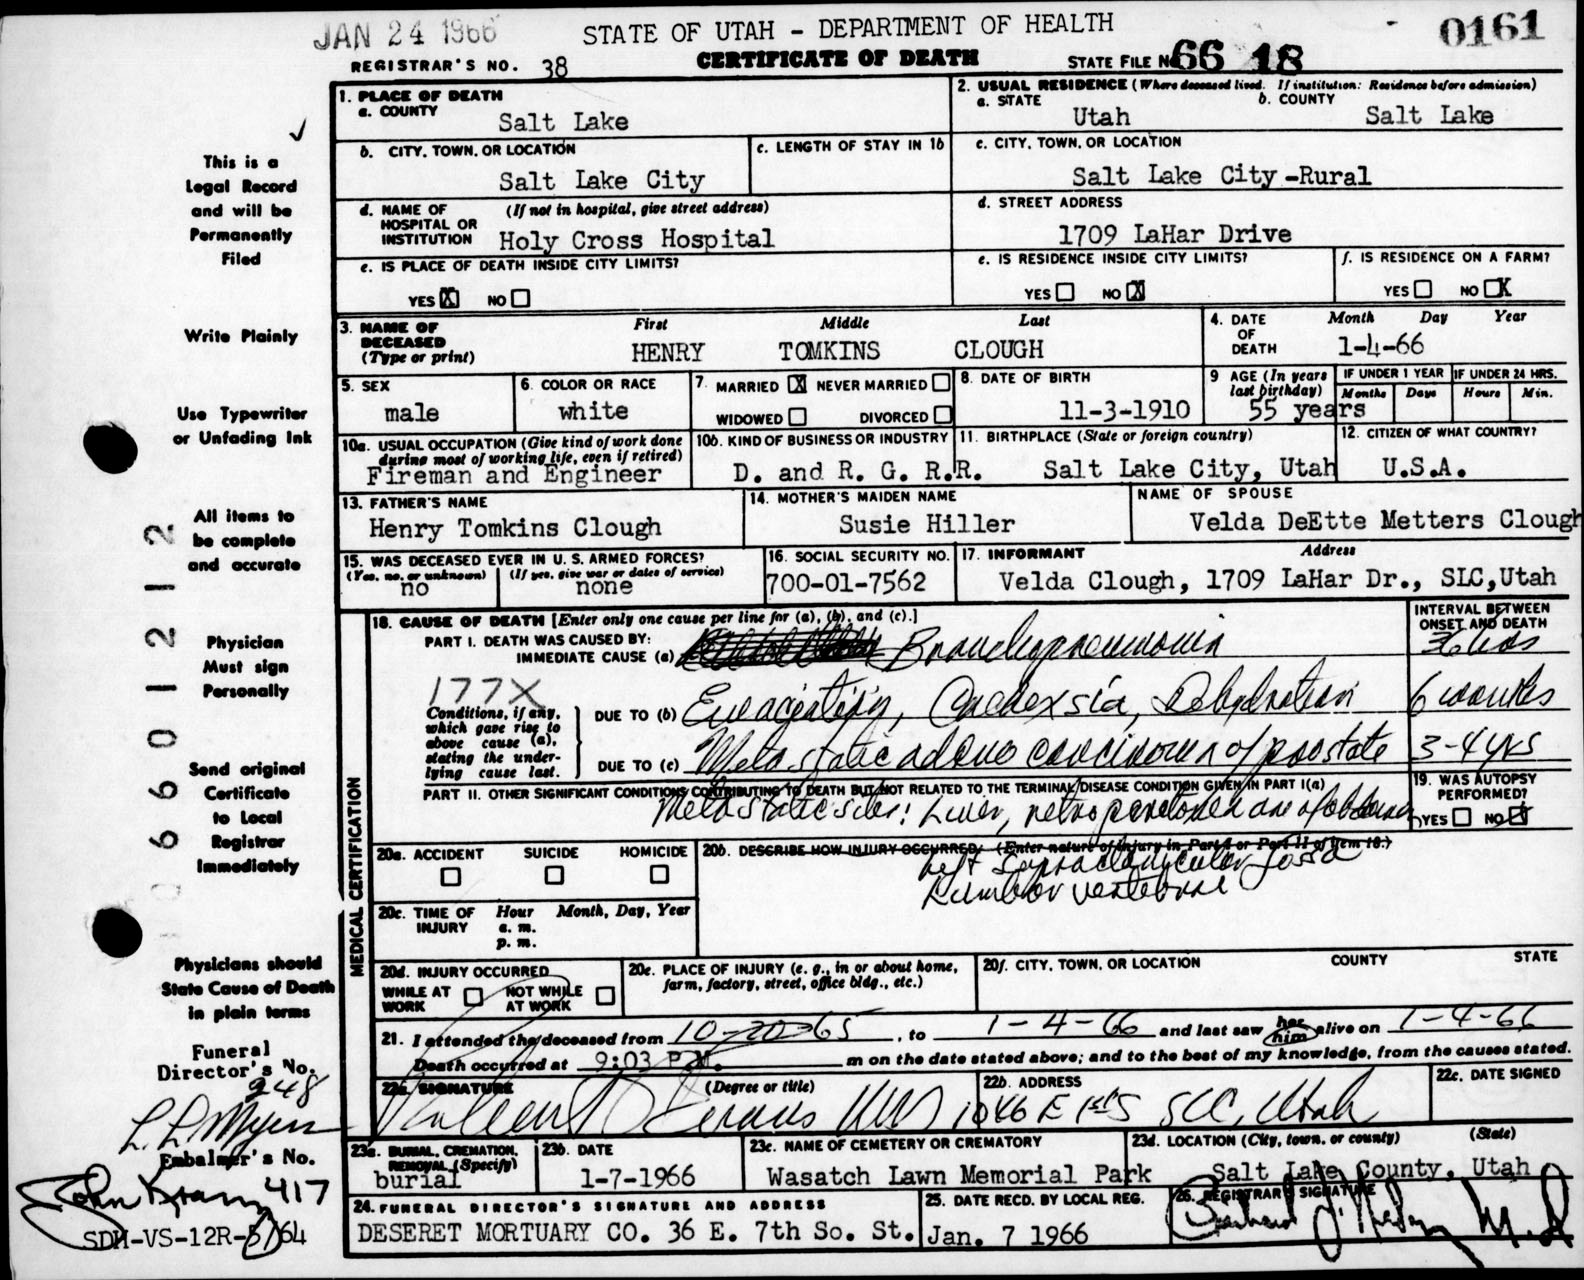 JAN 24 1966
STATE OF UTAH - DEPARTMENT OF HEALTH
0161
REGISTRAR'S NO. 38
CERTIFICATE OF DEATH
STATE FILE NO 66 18
1. PLACE OF DEATH
a. COUNTY
Salt Lake
2. USUAL RESIDENCE (Where deceased lived. If institution: Residence before admission)
a. STATE
Utah
b. COUNTY
Salt Lake
b. CITY, TOWN, OR LOCATION
Salt Lake City
c. LENGTH OF STAY IN 1b
c. CITY, TOWN, OR LOCATION
Salt Lake City-Rural
d. NAME OF HOSPITAL OR INSTITUTION
(If not in hospital, give street address)
Holy Cross Hospital
d. STREET ADDRESS
1709 LaHar Drive
e. IS PLACE OF DEATH INSIDE CITY LIMITS?
YES X NO
e. IS RESIDENCE INSIDE CITY LIMITS?
YES NO X
f. IS RESIDENCE ON A FARM?
YES NO X
3. NAME OF DECEASED (Type or print)
First Middle Last
HENRY TOMKINS CLOUGH
4. DATE OF DEATH
Month Day Year
1-4-66
5. SEX
male
6. COLOR OR RACE
white
7. MARRIED X NEVER MARRIED
WIDOWED DIVORCED
8. DATE OF BIRTH
11-3-1910
9 AGE (In years last birthday)
55 years
IF UNDER 1 YEAR
Months Days
IF UNDER 24 HRS.
Hours Min.
10a. USUAL OCCUPATION (Give kind of work done during most of working life, even if retired)
Fireman and Engineer
10b. KIND OF BUSINESS OR INDUSTRY
D. and R. G. R.R.
11. BIRTHPLACE (State or foreign country)
Salt Lake City, Utah
12. CITIZEN OF WHAT COUNTRY?
U.S.A.
13. FATHER'S NAME
Henry Tomkins Clough
14. MOTHER'S MAIDEN NAME
Susie Hiller
NAME OF SPOUSE
Velda DeEtte Metters Clough
15. WAS DECEASED EVER IN U. S. ARMED FORCES?
(Yes, no, or unknown) (If yes, give war or dates of service)
no none
16. SOCIAL SECURITY NO.
700-01-7562
17. INFORMANT Address
Velda Clough, 1709 LaHar Dr., SLC, Utah
MEDICAL CERTIFICATION
18. CAUSE OF DEATH [Enter only one cause per line for (a), (b), and (c).]
INTERVAL BETWEEN ONSET AND DEATH
PART I. DEATH WAS CAUSED BY:
IMMEDIATE CAUSE (a) Bronchopneumonia
36 hrs
177X
Conditions, if any, which gave rise to above cause (a), stating the underlying cause last.
DUE TO (b) Cachexsia, Dehydration
6 weeks
DUE TO (c) Metastatic adeno carcinoma of prostate
3-4 yrs
PART II. OTHER SIGNIFICANT CONDITIONS CONTRIBUTING TO DEATH BUT NOT RELATED TO THE TERMINAL DISEASE CONDITION GIVEN IN PART I(a)
Metastatic sites: Liver, retroperitoneal
left supraclavicular fossa
Lumbar vertebrae
19. WAS AUTOPSY PERFORMED?
YES NO X
20a. ACCIDENT SUICIDE HOMICIDE
20b. DESCRIBE HOW INJURY OCCURRED. (Enter nature of injury in Part I or Part II of item 18.)
20c. TIME OF INJURY
Hour Month, Day, Year
a. m.
p. m.
20d. INJURY OCCURRED
WHILE AT WORK NOT WHILE AT WORK
20e. PLACE OF INJURY (e. g., in or about home, farm, factory, street, office bldg., etc.)
20f. CITY, TOWN, OR LOCATION COUNTY STATE
21. I attended the deceased from 10-20-65, to 1-4-66 and last saw her him alive on 1-4-66
Death occurred at 9:03 P.M. m on the date stated above; and to the best of my knowledge, from the causes stated.
22a. SIGNATURE (Degree or title)
MD
22b. ADDRESS
1046 E 1st S SLC, Utah
22c. DATE SIGNED
23a. BURIAL, CREMATION, REMOVAL (Specify)
burial
23b. DATE
1-7-1966
23c. NAME OF CEMETERY OR CREMATORY
Wasatch Lawn Memorial Park
23d. LOCATION (City, town, or county) (State)
Salt Lake County, Utah
24. FUNERAL DIRECTOR'S SIGNATURE AND ADDRESS
DESERET MORTUARY CO. 36 E. 7th So. St.
25. DATE RECD. BY LOCAL REG.
Jan. 7 1966
26. REGISTRAR'S SIGNATURE
M.D
This is a
Legal Record
and will be
Permanently
Filed
Write Plainly
Use Typewriter
or Unfading Ink
All items to
be complete
and accurate
Physician
Must sign
Personally
Send original
Certificate
to Local
Registrar
Immediately
Physicians should
State Cause of Death
in plain terms
Funeral
Director's No.
248
L. L. Myers
Embalmer's No.
417
SDH-VS-12R-5/64